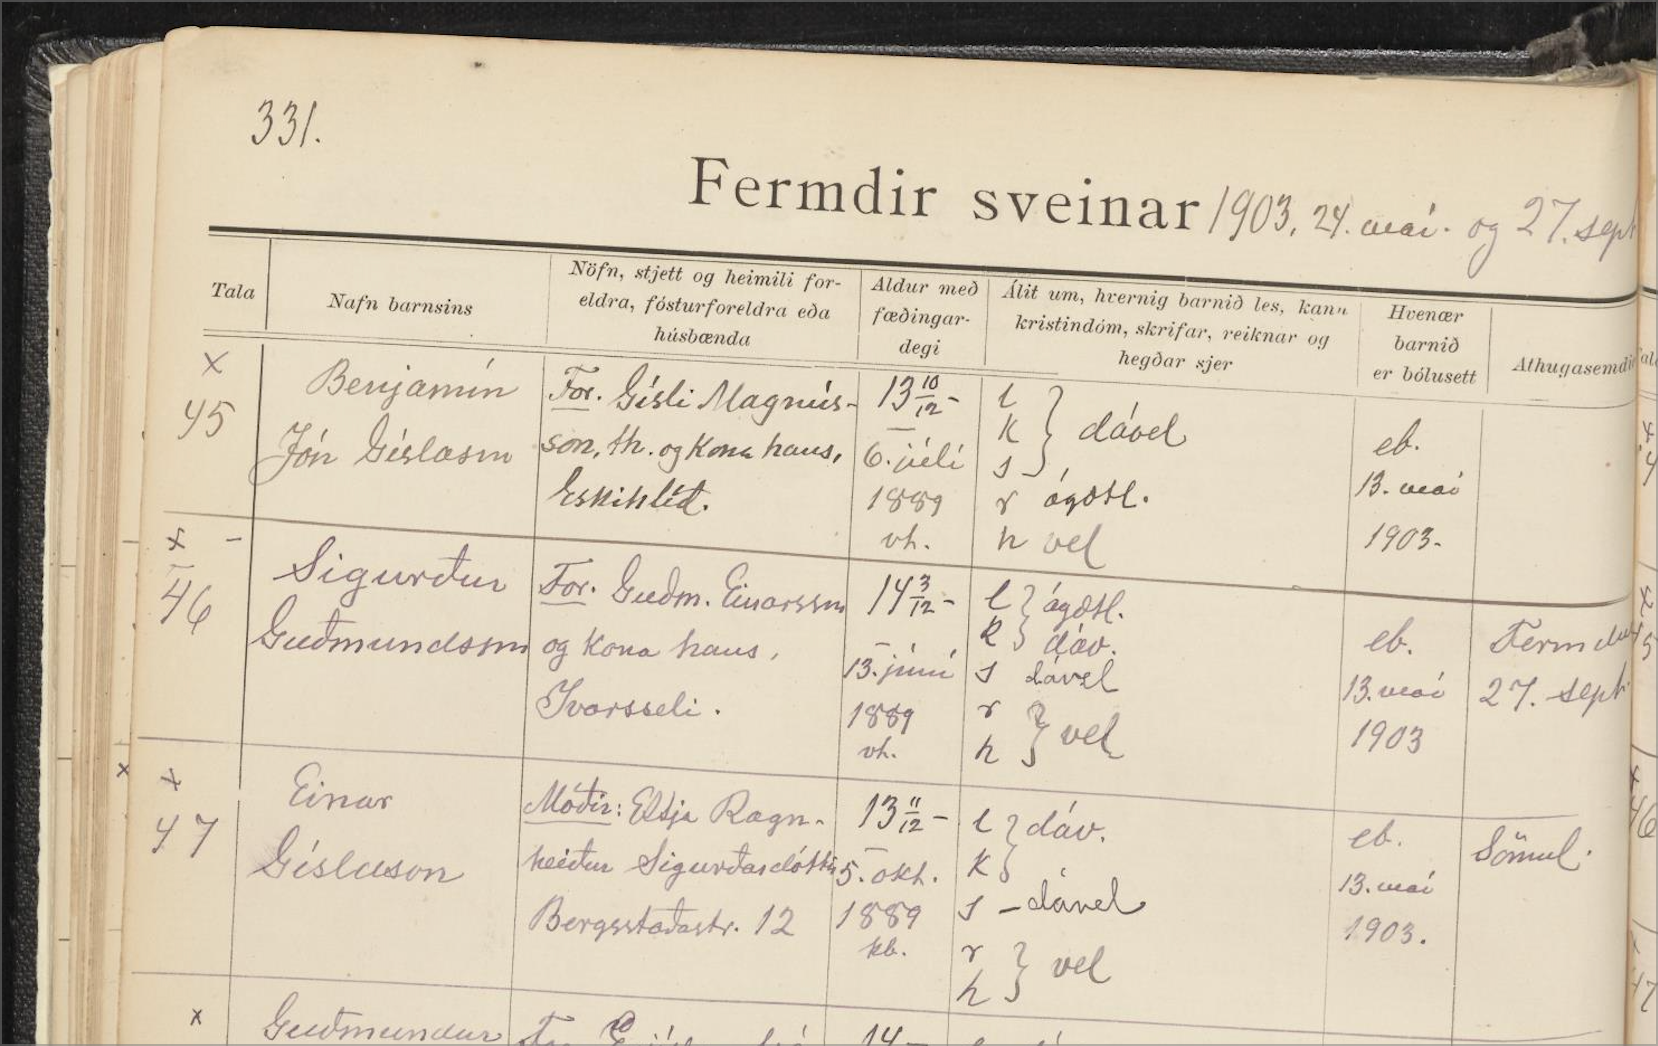 331.
Fermdir sveinar 1903, 24. maí. og 27. sept
Tala
Nafn barnsins
Nöfn, stjett og heimili for-
eldra, fósturforeldra eða
húsbænda
Aldur með
fæðingar-
degi
Álit um, hvernig barnið les, kann
kristindóm, skrifar, reiknar og
hegðar sjer
Hvenær
barnið
er bólusett
Athugasemdir
x
45
Benjamín
Jón Gíslason
For. Gísli Magnús-
son, th. og kona hans,
Eskihlíð.
13 10/12 -
6. júlí
1889
vh.
l
k } dável
s
r ágætl.
h vel
eb.
13. maí
1903.
x -
46
Sigurður
Guðmundsson
For. Guðm. Einarsson
og kona hans,
Ívarsseli.
14 3/12 -
13. júní
1889
vh.
l } ágætl.
k dáv.
s dável
r
h } vel
eb.
13. maí
1903
Fermdur
27. sept
x
x
47
Einar
Gíslason
Móðir: Elsja Ragn-
heiður Sigurðardóttir
Bergsstaðastr. 12
13 11/12 -
5. okt.
1889
kb.
l } dáv.
k
s - dável
r
h } vel
eb.
13. maí
1903.
Sömul.
x
Guðmundur
14 -